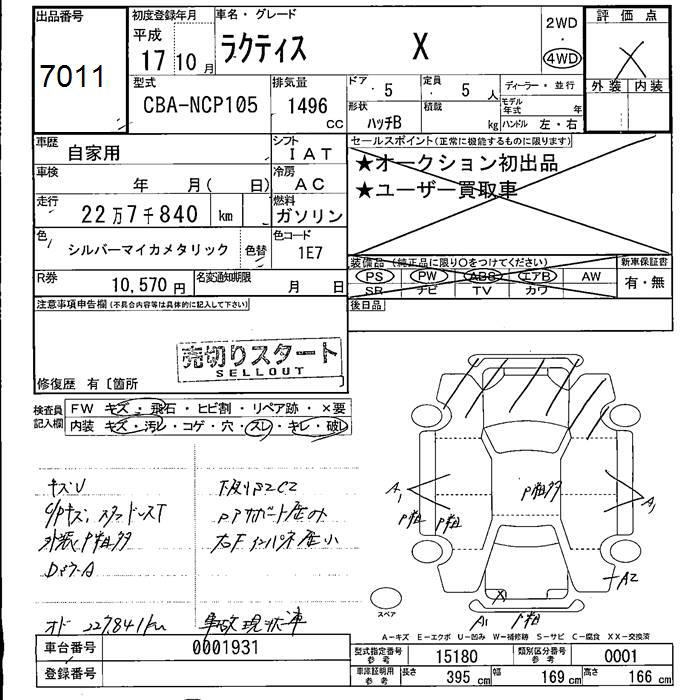 出品番号
7011
初度登録年月
平成
17 10 月
車名・グレード
ラクティス X
2WD
・
4WD
評価点
X
外装 内装
型式
CBA-NCP105
排気量
1496
CC
ドア
5
定員
5 人
ディーラー・並行
形状
ハッチB
積載
kg
モデル年式
年
ハンドル 左・右
車歴
自家用
シフト
IAT
車検
年 月( 日)
冷房
AC
走行
22万7千840 km
燃料
ガソリン
色
シルバーマイカメタリック
色替
色コード
1E7
セールスポイント(正常に機能するものに限ります)
★オークション初出品
★ユーザー買取車
R券
10,570 円
名変通知期限
月 日
装備品(純正品に限り○をつけてください)
PS PW ABS エアB AW
SR ナビ TV カワ
新車保証書
有・無
注意事項申告欄(不具合内容等は具体的に記入して下さい)
後日品
売切りスタート
SELLOUT
修復歴 有〔箇所
検査員記入欄
FW キズ・飛石・ヒビ割・リペア跡・×要
内装 キズ・汚レ・コゲ・穴・スレ・キレ・破レ
キズU
外装P粗多
オド 227.841km
事故現状車
A1
P粗 P粗
P粗多
A1
A2
X
A1 P粗
スペア
A-キズ E-エクボ U-凹み W-補修跡 S-サビ C-腐食 XX-交換済
車台番号
0001931
登録番号
型式指定番号
参考
15180
類別区分番号
参考
0001
車庫証明用
参考
長さ 395 cm 幅 169 cm 高さ 166 cm